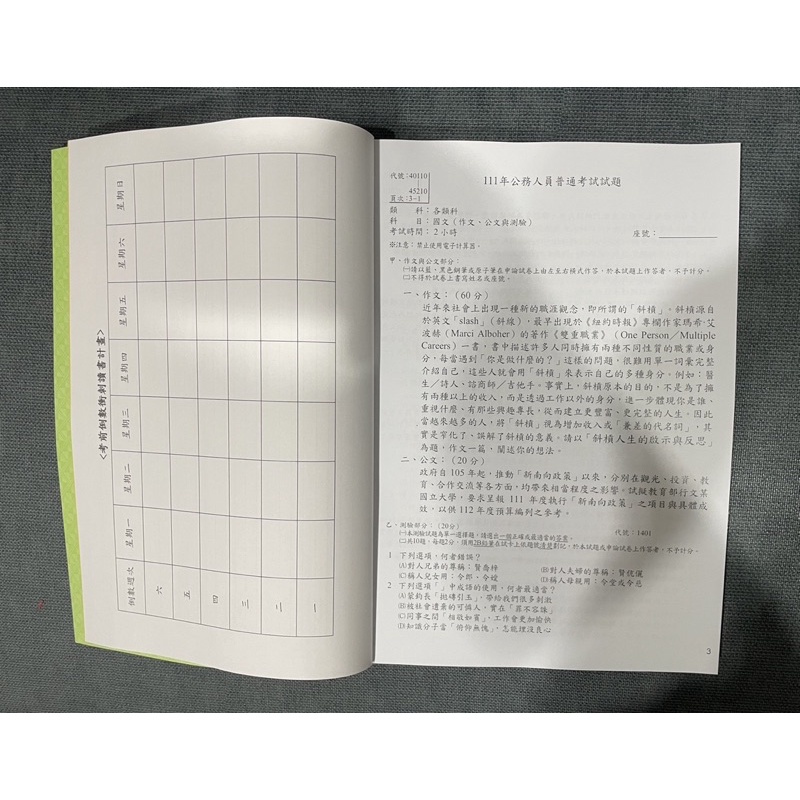 <考前倒數衝刺讀書計畫>
倒數週次 星期一 星期二 星期三 星期四 星期五 星期六 星期日
六
五
四
三
二
一
代號:40110
45210
頁次:3-1
111年公務人員普通考試試題
類 科:各類科
科 目:國文(作文、公文與測驗)
考試時間:2小時
座號:
※注意:禁止使用電子計算器。
甲、作文與公文部分:
㈠請以藍、黑色鋼筆或原子筆在申論試卷上由左至右橫式作答,於本試題上作答者,不予計分。
㈡不得於試卷上書寫姓名或座號。
一、作文:(60分)
近年來社會上出現一種新的職涯觀念,即所謂的「斜槓」。斜槓源自
於英文「slash」(斜線),最早出現於《紐約時報》專欄作家瑪希‧艾
波赫(Marci Alboher)的著作《雙重職業》(One Person/Multiple
Careers)一書,書中描述許多人同時擁有兩種不同性質的職業或身
分,每當遇到「你是做什麼的?」這樣的問題,很難用單一詞彙完整
介紹自己,這些人就會用「斜槓」來表示自己的多種身分。例如:醫
生/詩人、諮商師/吉他手。事實上,斜槓原本的目的,不是為了擁
有兩種以上的收入,而是透過工作以外的身分,進一步體現你是誰、
重視什麼、有那些興趣專長,從而建立更豐富、更完整的人生。因此
當越來越多的人,將「斜槓」視為增加收入或「兼差的代名詞」,其
實是窄化了、誤解了斜槓的意義。請以「斜槓人生的啟示與反思」
為題,作文一篇,闡述你的想法。
二、公文:(20分)
政府自105年起,推動「新南向政策」以來,分別在觀光、投資、教
育、合作交流等各方面,均帶來相當程度之影響。試擬教育部行文某
國立大學,要求呈報111年度執行「新南向政策」之項目與具體成
效,以供112年度預算編列之參考。
乙、測驗部分:(20分)
代號:1401
㈠本測驗試題為單一選擇題,請選出一個正確或最適當的答案。
㈡共10題,每題2分,須用2B鉛筆在試卡上依題號清楚劃記,於本試題或申論試卷上作答者,不予計分。
1 下列選項,何者錯誤?
(A)對人兄弟的尊稱:賢喬梓
(B)對人夫婦的尊稱:賢伉儷
(C)稱人兒女用:令郎、令嬡
(D)稱人母親用:令堂或令慈
2 下列選項「」中成語的使用,何者最適當?
(A)蒙鈞長「拋磚引玉」,帶給我們很多刺激
(B)被社會遺棄的可憐人,實在「罪不容誅」
(C)同事之間「相敬如賓」,工作會更加愉快
(D)知識分子當「俯仰無愧」,怎能埋沒良心
3